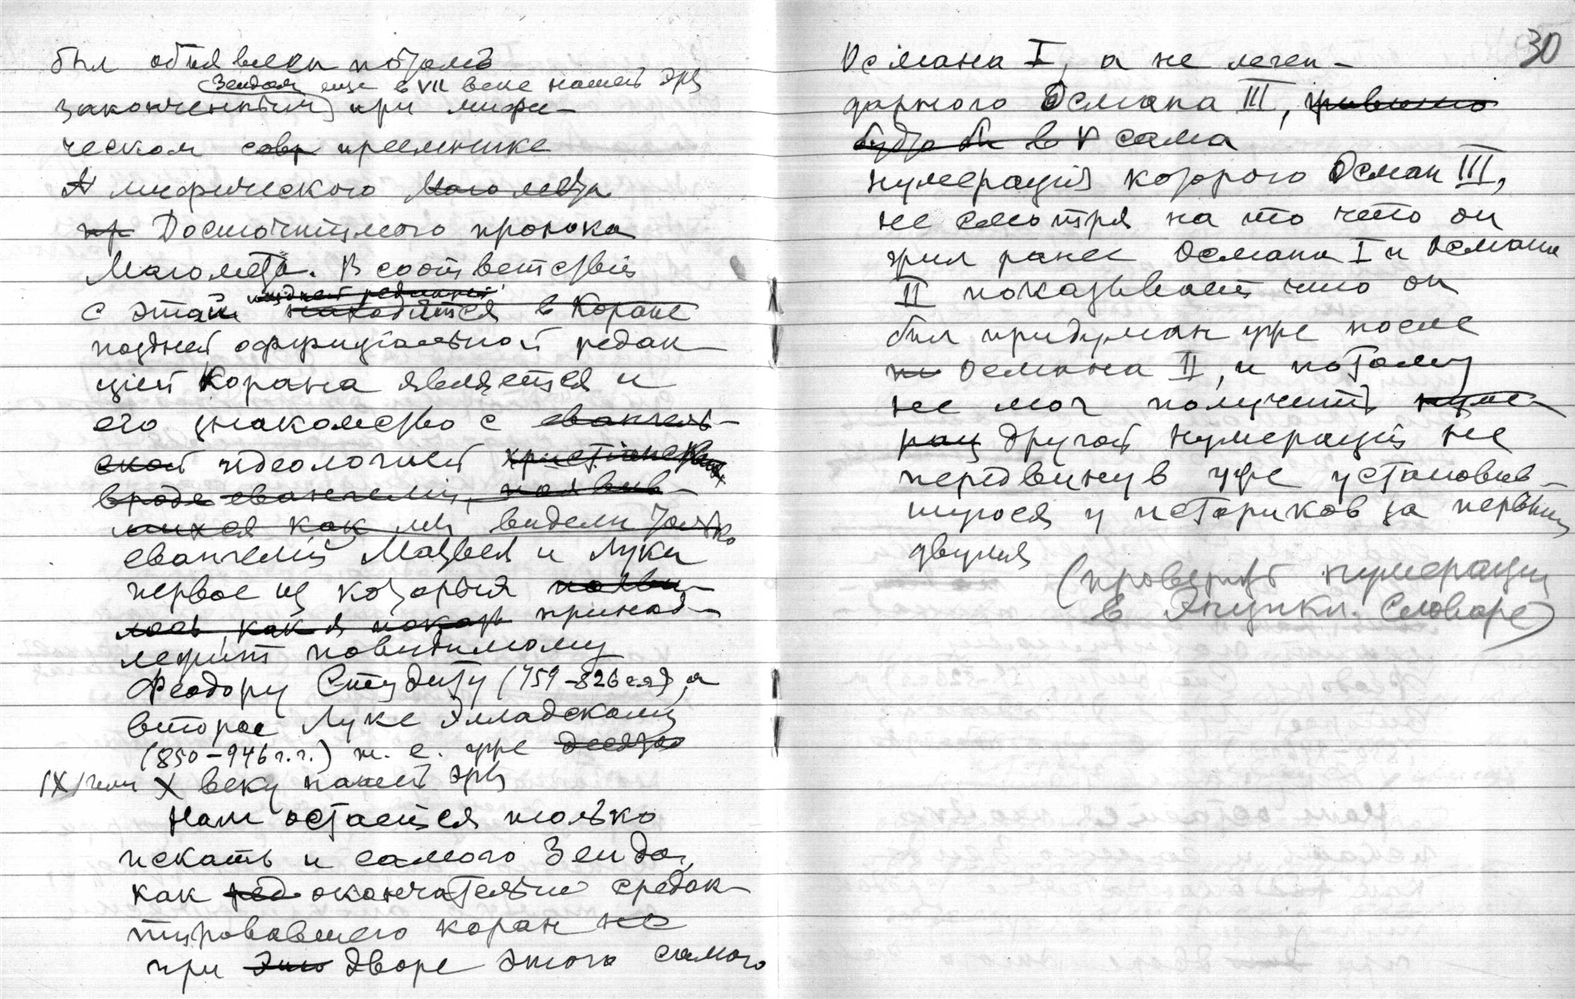 был объявлен потом
Зеидом еще в VII веке нашей эры
законченным при мифи-
ческом преемнике
мифического Магомета
Досточтимого пророка
Магомета. В соответствiи
поздней редакцiи
с этой находятся в Коране
поздней оффицiальной редак-
цiей Корана является и
его знакомство с евангель-
ской идеологией христiанской
вроде евангелiй, появив-
шихся как мы видели только
евангелiй Матвея и Луки
первое из которых появи-
лось, как я показ принад-
лежит повидимому
Феодору Студиту (759-826 гг), а
второе Луке Элладскому
(850-946 г.г.) т. е. уже десято
IX или X веку нашей эры
Нам остается только
искать и самого Зеида,
как ред окончательно средак-
тировавшего коран но
при это дворе этого самого
30
Османа I, а не леген-
дарного Османа III,
сама
нумерацiя которого Осман III,
не смотря на то что он
жил ранее Османа I и Османа
II показывает что он
был придуман уже после
Османа II, и потому
не мог получить нуме-
рац другой нумерацiи не
передвинув уже установив-
шуюся у историков за первыми
двумя
(проверить нумерацiю
в Энцикл. Словаре)